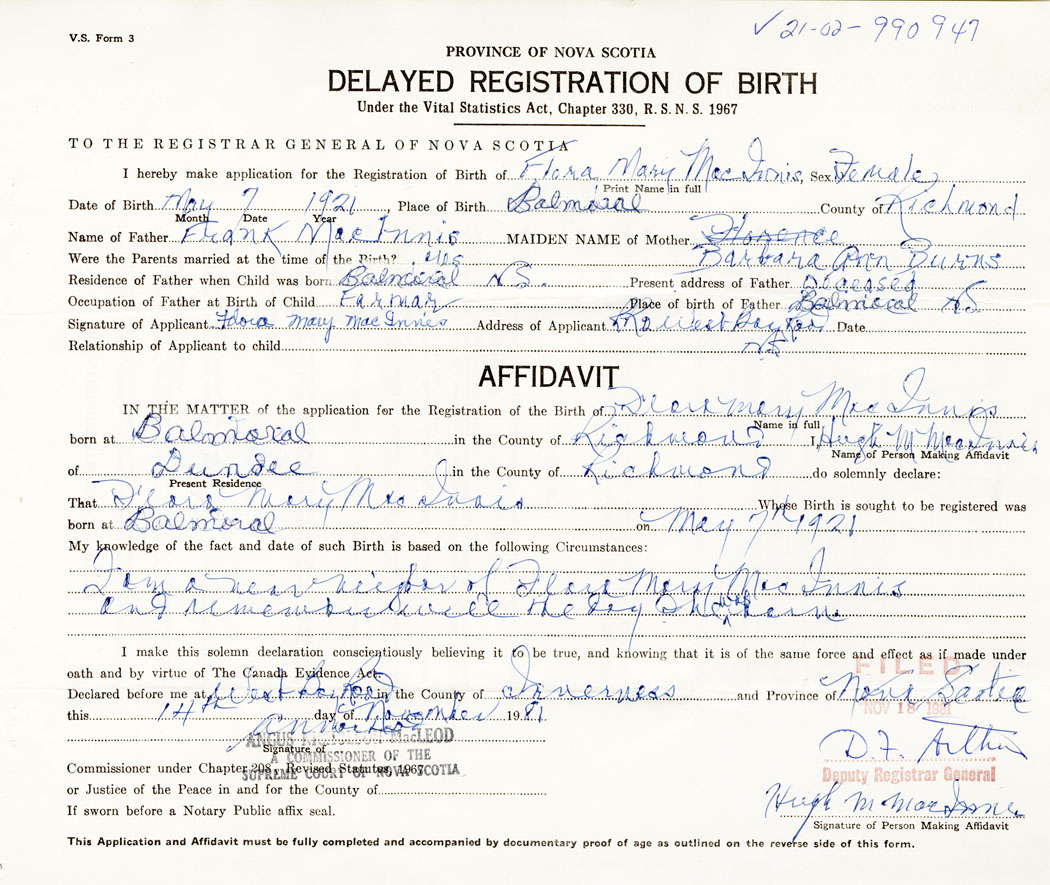 ✓ 21-02-990947
V.S. Form 3
PROVINCE OF NOVA SCOTIA
DELAYED REGISTRATION OF BIRTH
Under the Vital Statistics Act, Chapter 330, R. S. N. S. 1967
TO THE REGISTRAR GENERAL OF NOVA SCOTIA
I hereby make application for the Registration of Birth of Flora Mary MacInnis, Sex Female
Print Name in full
Date of Birth May 7 1921, Place of Birth Balmoral County of Richmond
Month Date Year
Name of Father Frank MacInnis MAIDEN NAME of Mother Florence
Were the Parents married at the time of the Birth? yes Barbara Ann Burns
Residence of Father when Child was born Balmoral N.S. Present address of Father Diceased
Occupation of Father at Birth of Child Farmar Place of birth of Father Balmoral NS
Signature of Applicant Flora Mary MacInnis Address of Applicant RR2 West Bay Road Date
Relationship of Applicant to child NS
AFFIDAVIT
IN THE MATTER of the application for the Registration of the Birth of Flora Mary MacInnis
Name in full
born at Balmoral in the County of Richmond I, Hugh M MacInnis
Name of Person Making Affidavit
of Dundee in the County of Richmond do solemnly declare:
Present Residence
That Flora Mary MacInnis Whose Birth is sought to be registered was
born at Balmoral on May 7th 1921
My knowledge of the fact and date of such Birth is based on the following Circumstances:
I am a near neibor of Flora Mary MacInnis
and remember well the day She was born
I make this solemn declaration conscientiously believing it to be true, and knowing that it is of the same force and effect as if made under
oath and by virtue of The Canada Evidence Act.
FILED
Declared before me at West Bay Road in the County of Inverness and Province of Nova Scotia
this 14th day of November 1981
NOV 18 1981
ANGUS MacLEOD
Signature of
A COMMISSIONER OF THE
D.F. Arthur
Commissioner under Chapter 208, Revised Statutes, 1967
SUPREME COURT OF NOVA SCOTIA
Deputy Registrar General
or Justice of the Peace in and for the County of
Hugh M MacInnis
If sworn before a Notary Public affix seal.
Signature of Person Making Affidavit
This Application and Affidavit must be fully completed and accompanied by documentary proof of age as outlined on the reverse side of this form.